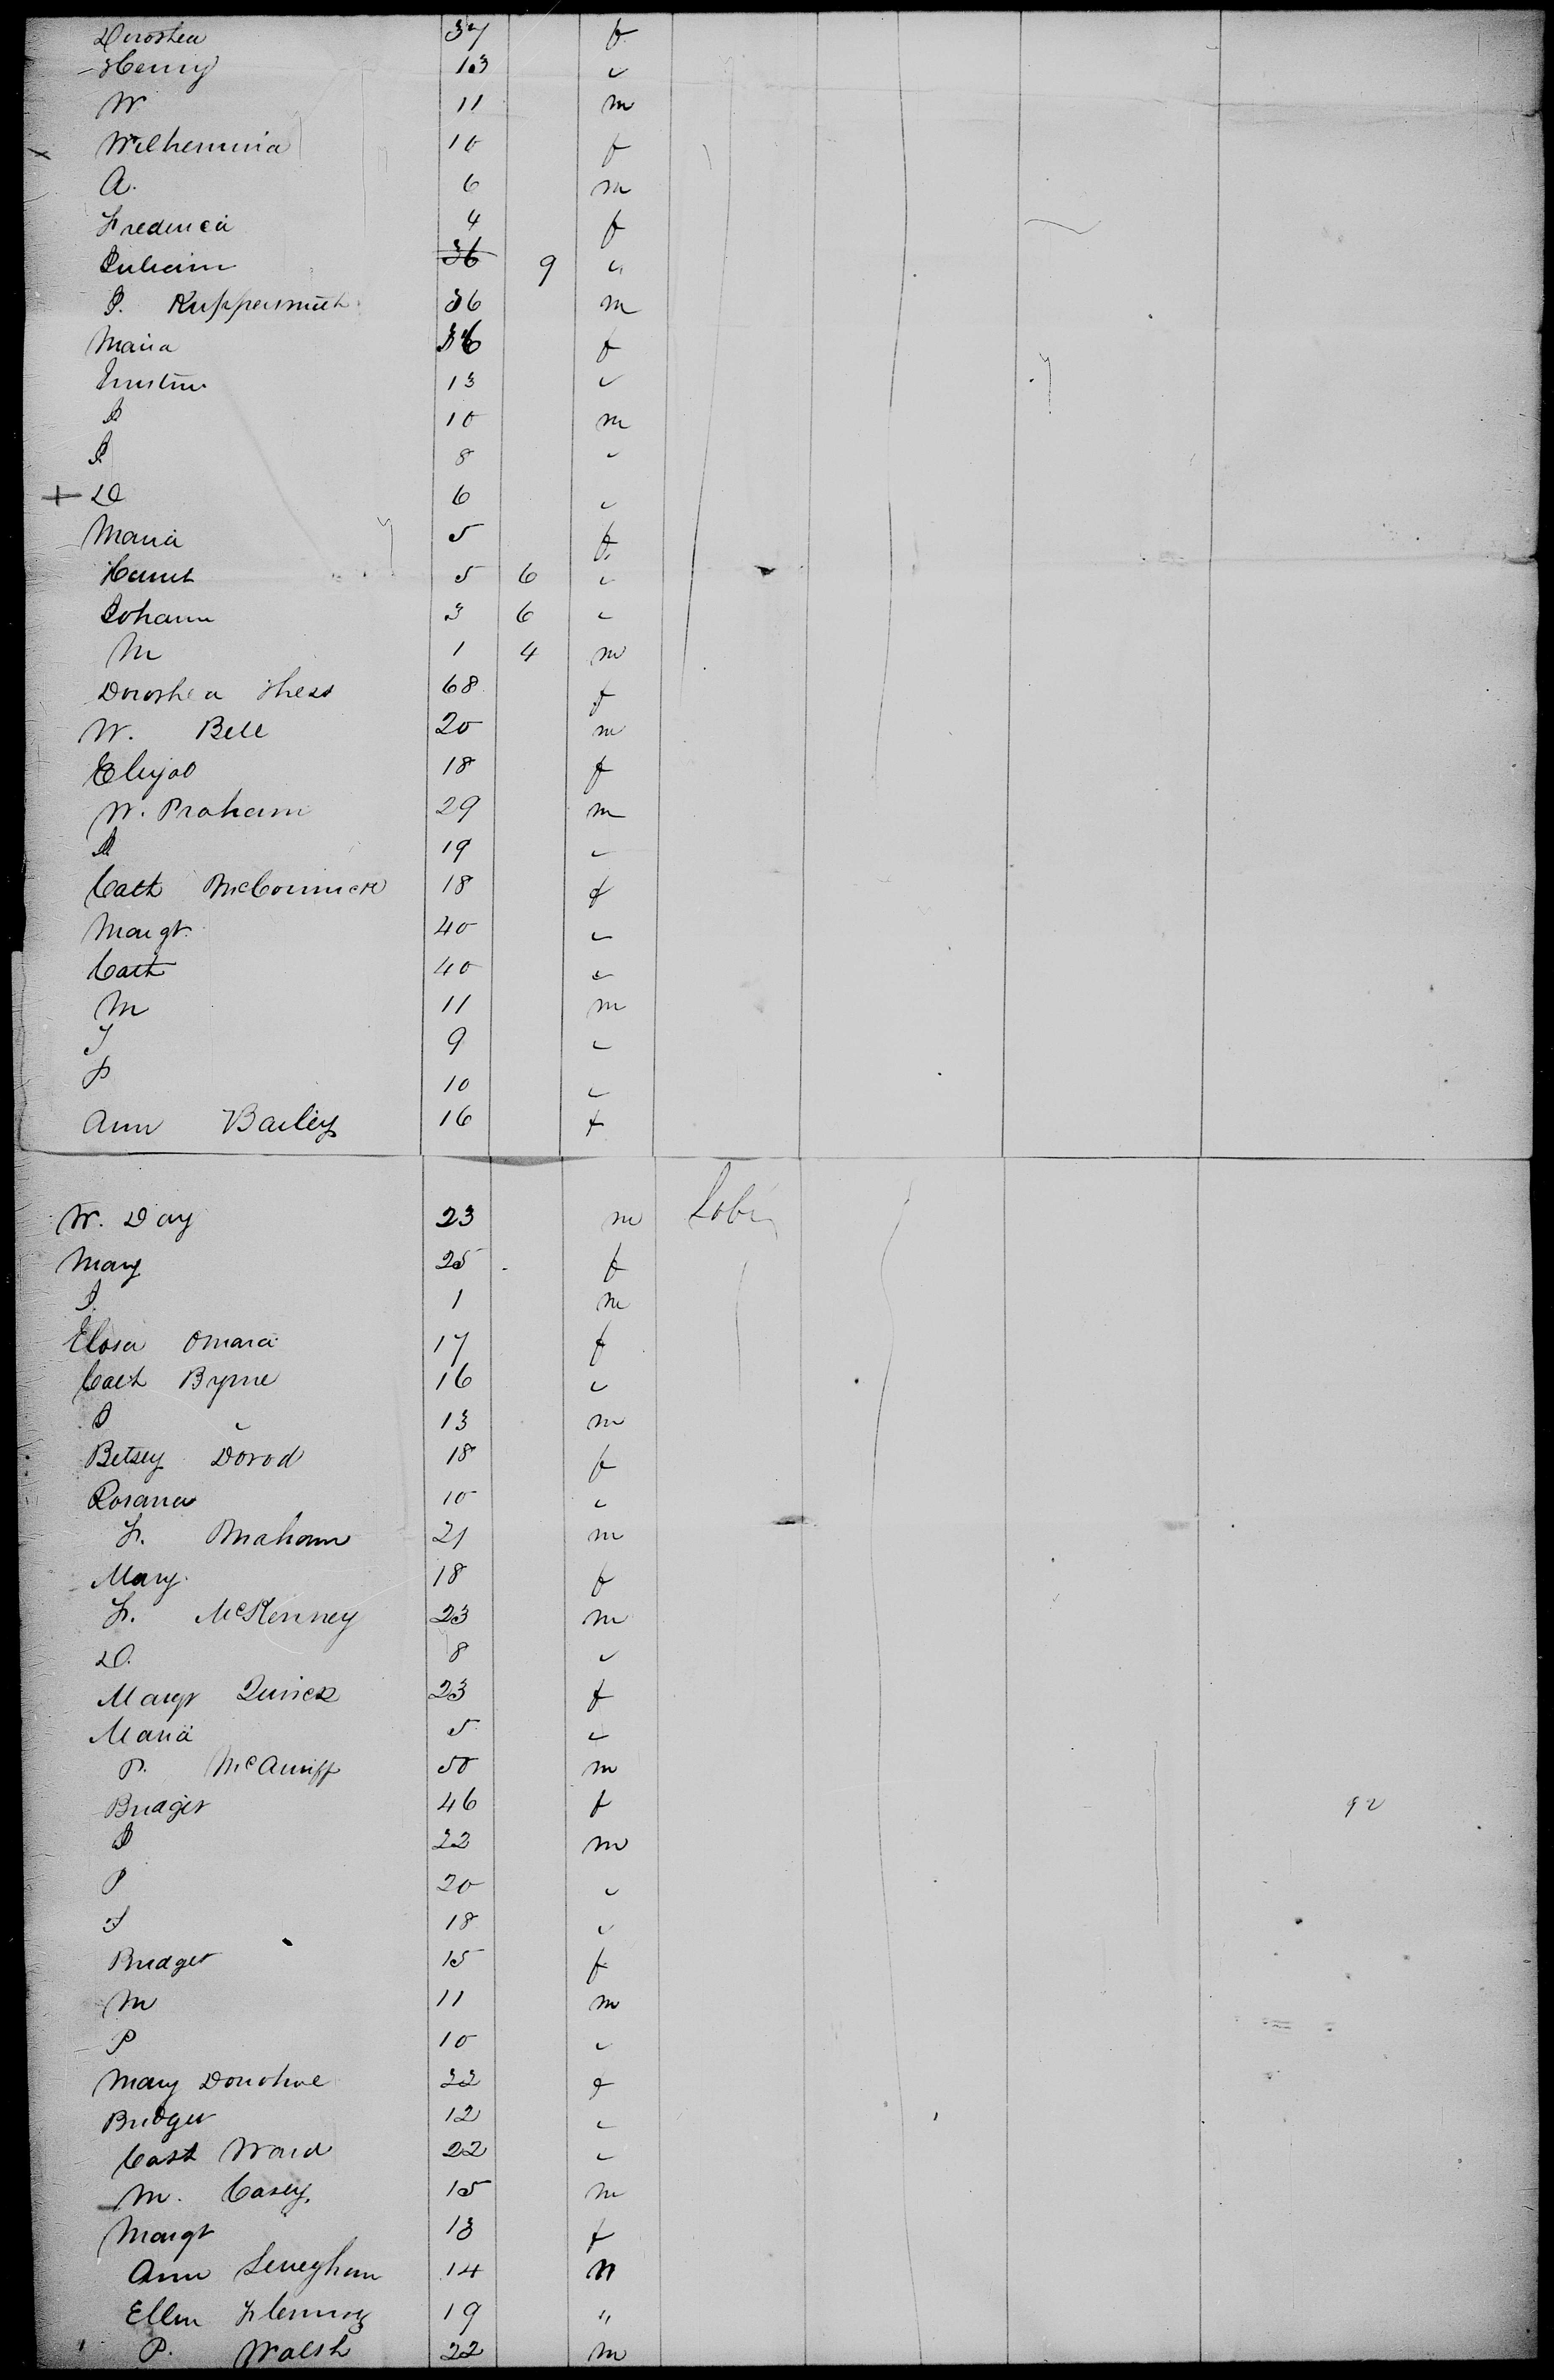 Dorothea 37 f
Henry 13 "
W 11 m
Wilhemina 10 f
A. 6 m
Frederica 4 f
36 9 "
J. Kuppersmith 36 m
Maria 36 f
13 "
J 10 m
J 8 "
D 6 "
Maria 5 f.
5 6 "
Johann 3 6 "
M 1 4 m
Dorothea Thess 68 f
W. Bell 20 m
18 f
W. Praham 29 m
J 19 "
Cath McCormick 18 f
Margt. 40 "
Cath 40 "
M 11 m
J 9 "
P 10 "
Ann Bailey 16 f
W. Day 23 m
Mary 25 f
J. 1 m
Elosa Omara 17 f
Cath Byrne 16 "
J " 13 m
Betsey Dorod 18 f
Rosanna 10 "
F. 21 m
Mary. 18 f
F. McKenney 23 m
D. 8 "
Margt Quick 23 f
Maria 5 "
P. McAuniff 50 m
Bridget 46 f 92
J 22 m
P 20 "
J 18 "
Bridget 15 f
M 11 m
P 10 "
Mary Donohue 22 f
Bridget 12 "
Cath Ward 22 "
M. Casey. 15 m
Margt 13 f
Ann Leneghan 14 "
Ellen Fleming 19 "
P. Walsh 22 m